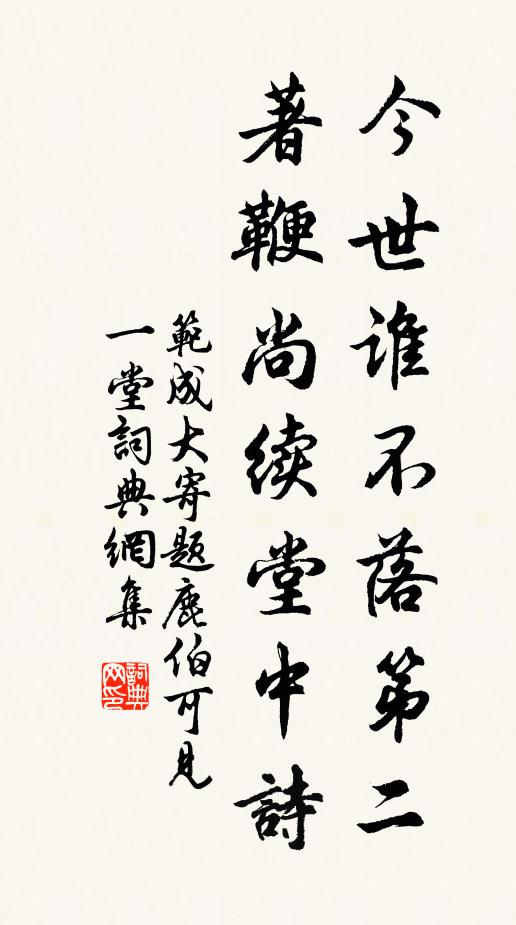 今世谁不落第二
著鞭尚续堂中詩
範成大寄题鹿伯可見
一堂詞典網集
詞典网印